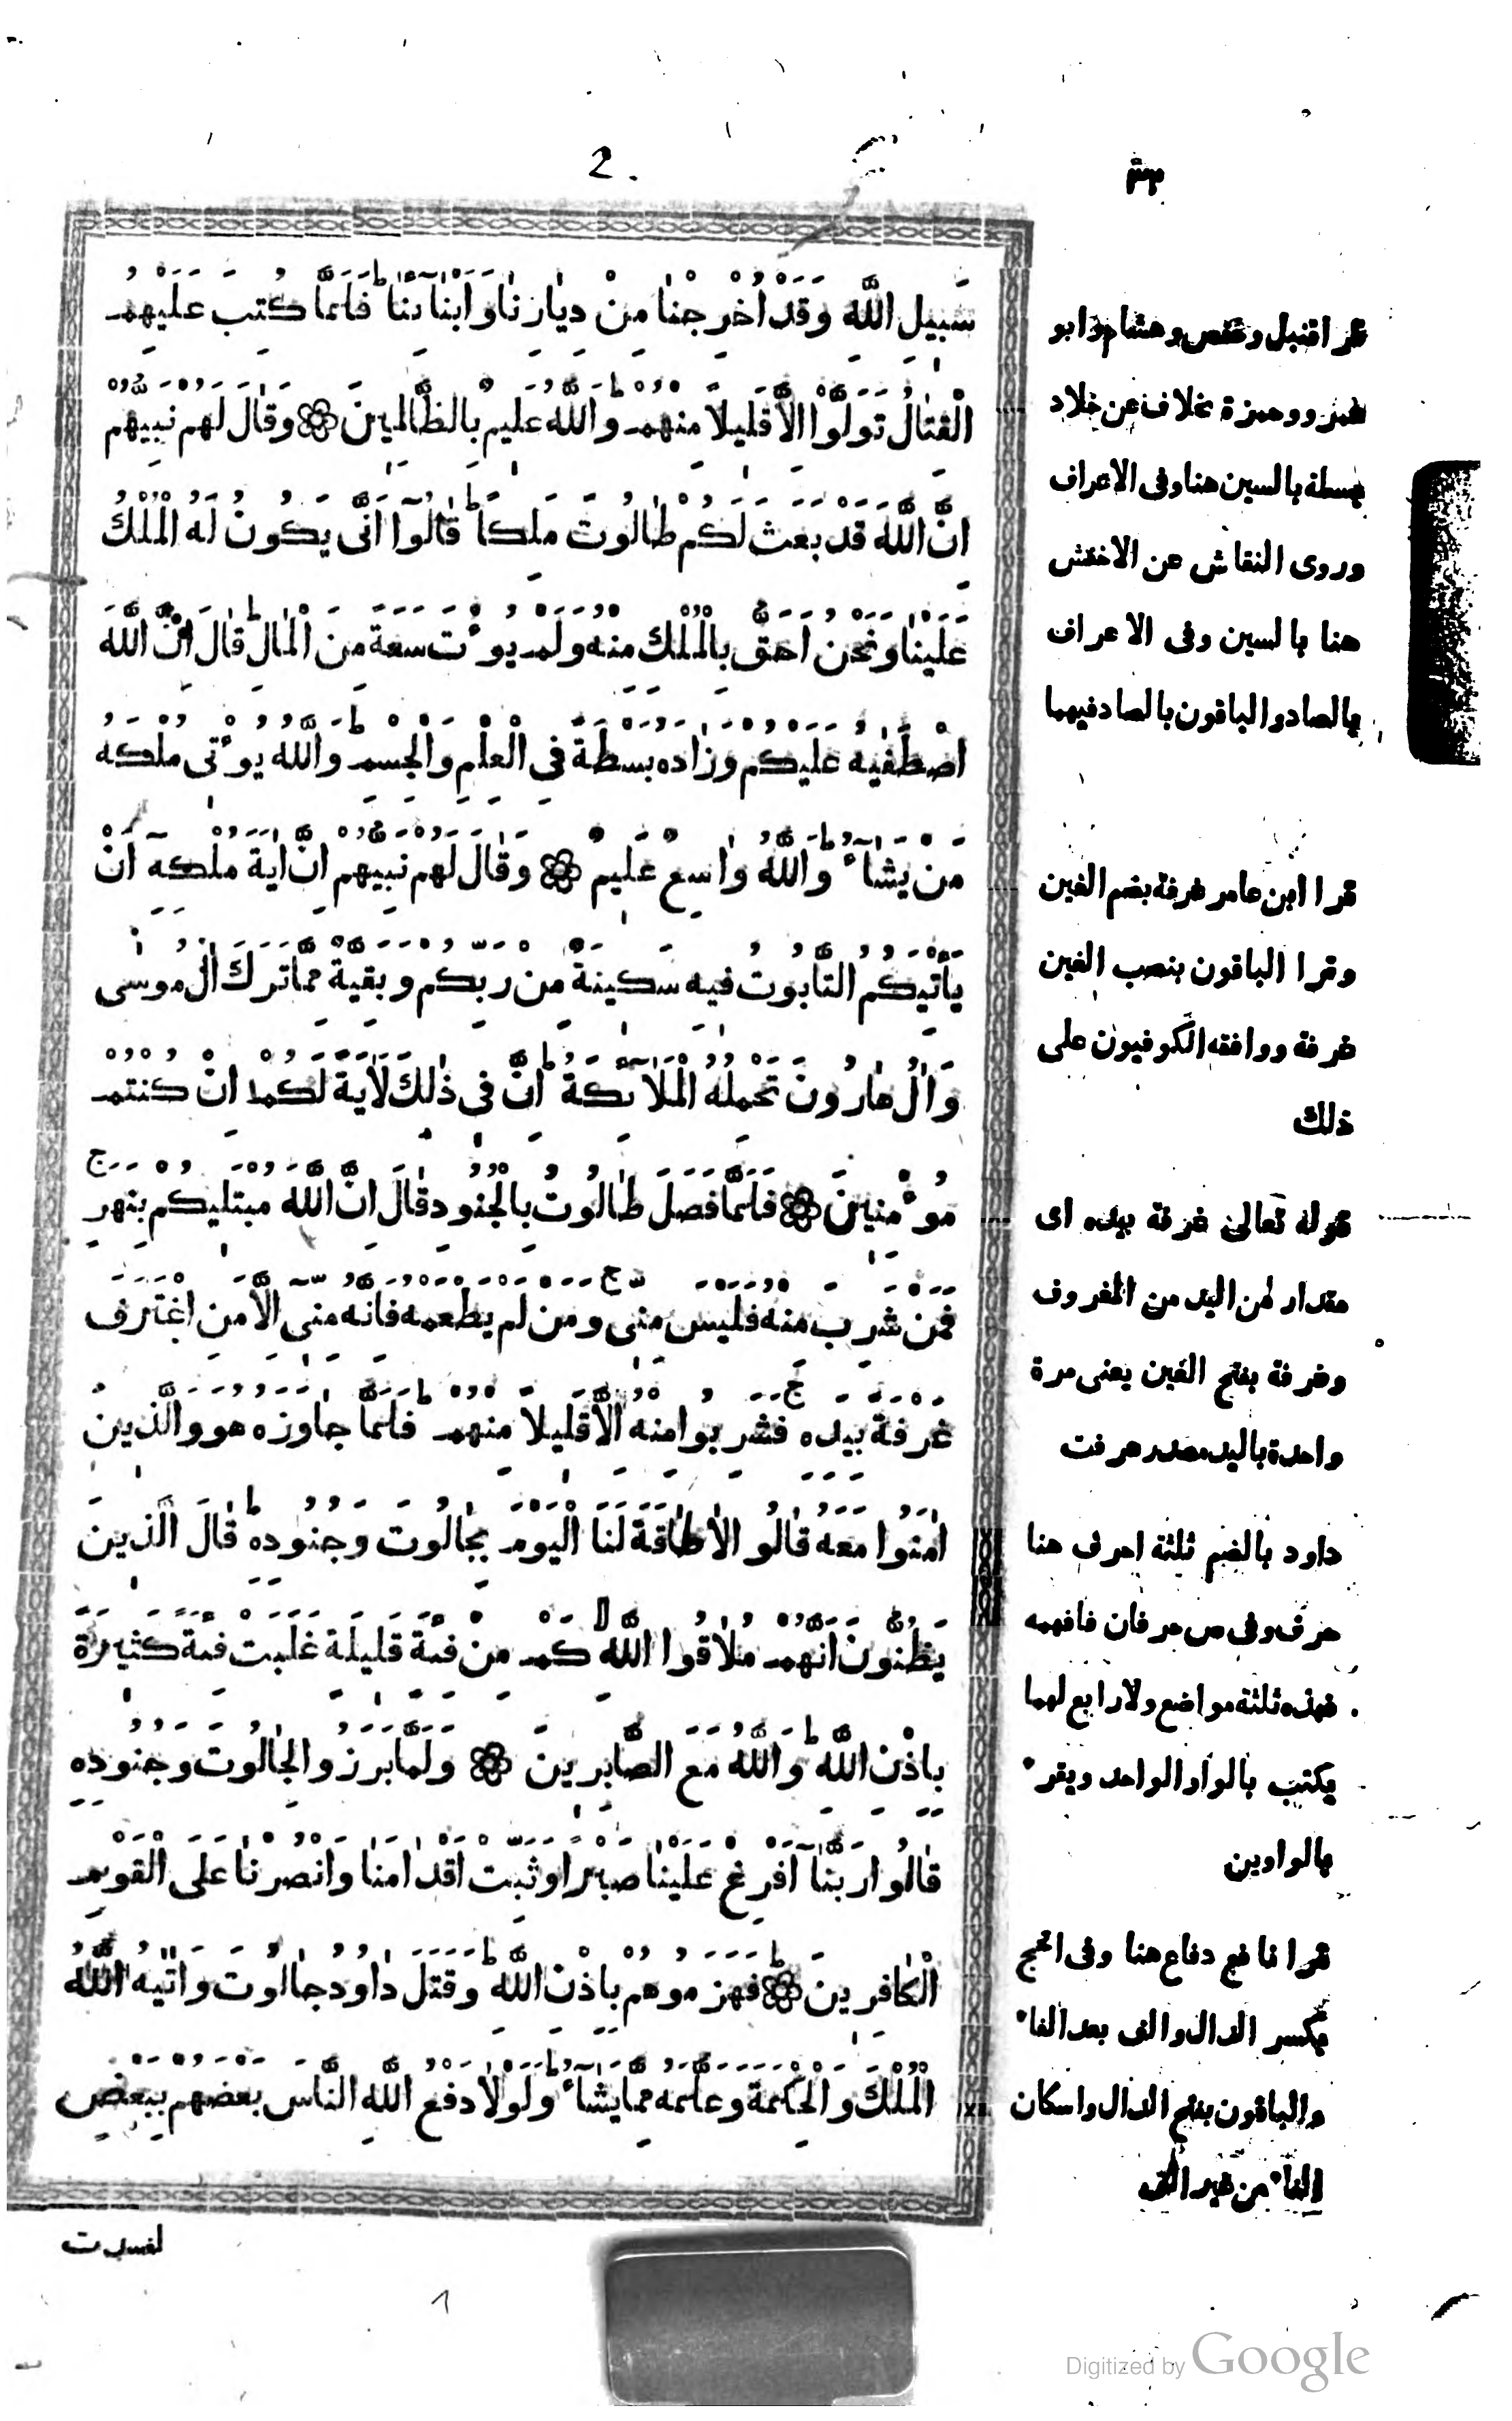 2.
سَبِيلِ اللَّهِ وَقَدْ اُخْرِجْنَا مِنْ دِيَارِنَا وَاَبْنَآئِنَا ط فَلَمَّا كُتِبَ عَلَيْهِمُ
الْقِتَالُ تَوَلَّوْا اِلَّا قَلِيلًا مِنْهُمْ ط وَاللَّهُ عَلِيمٌ بِالظَّالِمِينَ وَقَالَ لَهُمْ نَبِيُّهُمْ
اِنَّ اللَّهَ قَدْ بَعَثَ لَكُمْ طَالُوتَ مَلِكًا ط قَالُوٓا اَنَّى يَكُونُ لَهُ الْمُلْكُ
عَلَيْنَا وَنَحْنُ اَحَقُّ بِالْمُلْكِ مِنْهُ وَلَمْ يُؤْتَ سَعَةً مِنَ الْمَالِ ط قَالَ اِنَّ اللَّهَ
اصْطَفٰيهُ عَلَيْكُمْ وَزَادَهُ بَسْطَةً فِى الْعِلْمِ وَالْجِسْمِ ط وَاللَّهُ يُؤْتِى مُلْكَهُ
مَنْ يَشَآءُ ط وَاللَّهُ وَاسِعٌ عَلِيمٌ وَقَالَ لَهُمْ نَبِيُّهُمْ اِنَّ اٰيَةَ مُلْكِهِٓ اَنْ
يَأْتِيَكُمُ التَّابُوتُ فِيهِ سَكِينَةٌ مِنْ رَبِّكُمْ وَبَقِيَّةٌ مِمَّا تَرَكَ اٰلُ مُوسٰى
وَاٰلُ هَارُونَ تَحْمِلُهُ الْمَلَآئِكَةُ ط اِنَّ فِى ذٰلِكَ لَاٰيَةً لَكُمْ اِنْ كُنْتُمْ
مُؤْمِنِينَ فَلَمَّا فَصَلَ طَالُوتُ بِالْجُنُودِ قَالَ اِنَّ اللَّهَ مُبْتَلِيكُمْ بِنَهَرٍ ج
فَمَنْ شَرِبَ مِنْهُ فَلَيْسَ مِنِّى ج وَمَنْ لَمْ يَطْعَمْهُ فَاِنَّهُ مِنِّى اِلَّا مَنِ اغْتَرَفَ
غَرْفَةً بِيَدِهِ ج فَشَرِبُوا مِنْهُ اِلَّا قَلِيلًا مِنْهُمْ ط فَلَمَّا جَاوَزَهُ هُوَ وَالَّذِينَ
اٰمَنُوا مَعَهُ قَالُوا لَا طَاقَةَ لَنَا الْيَوْمَ بِجَالُوتَ وَجُنُودِهِ ط قَالَ الَّذِينَ
يَظُنُّونَ اَنَّهُمْ مُلَاقُوا اللَّهِ لا كَمْ مِنْ فِئَةٍ قَلِيلَةٍ غَلَبَتْ فِئَةً كَثِيرَةً
بِاِذْنِ اللَّهِ ط وَاللَّهُ مَعَ الصَّابِرِينَ وَلَمَّا بَرَزُوا لِجَالُوتَ وَجُنُودِهِ
قَالُوا رَبَّنَآ اَفْرِغْ عَلَيْنَا صَبْرًا وَثَبِّتْ اَقْدَامَنَا وَانْصُرْنَا عَلَى الْقَوْمِ
الْكَافِرِينَ ط فَهَزَمُوهُمْ بِاِذْنِ اللَّهِ ط وَقَتَلَ دَاوُدُ جَالُوتَ وَاٰتٰيهُ اللَّهُ
الْمُلْكَ وَالْحِكْمَةَ وَعَلَّمَهُ مِمَّا يَشَآءُ ط وَلَوْلَا دَفْعُ اللَّهِ النَّاسَ بَعْضَهُمْ بِبَعْضٍ
لفسدت
قرا قنبل وحفص وهشام وابو
عمرو وحمزة بخلاف عن خلاد
بسطة بالسين هنا وفى الاعراف
وروى النقاش عن الاخفش
هنا بالسين وفى الاعراف
بالصاد والباقون بالصاد فيهما
قرا ابن عامر غرفة بضم الغين
وقرا الباقون بنصب الغين
غرفة ووافقه الكوفيون على
ذلك
قوله تعالى غرفة بيده اى
مقدار من اليد من المغروف
وغرفة بفتح الغين يعنى مرة
واحدة باليد مصدر غرفت
داود بالضم ثلثة احرف هنا
حرف وفى ص حرفان فافهمه
فهذه ثلثة مواضع ولا رابع لهما
يكتب بالواو الواحد ويقرء
بالواوين
قرا نافع دفاع هنا وفى الحج
بكسر الدال والف بعد الفاء
والباقون بفتح الدال واسكان
الفاء من غير الف
Digitized by Google